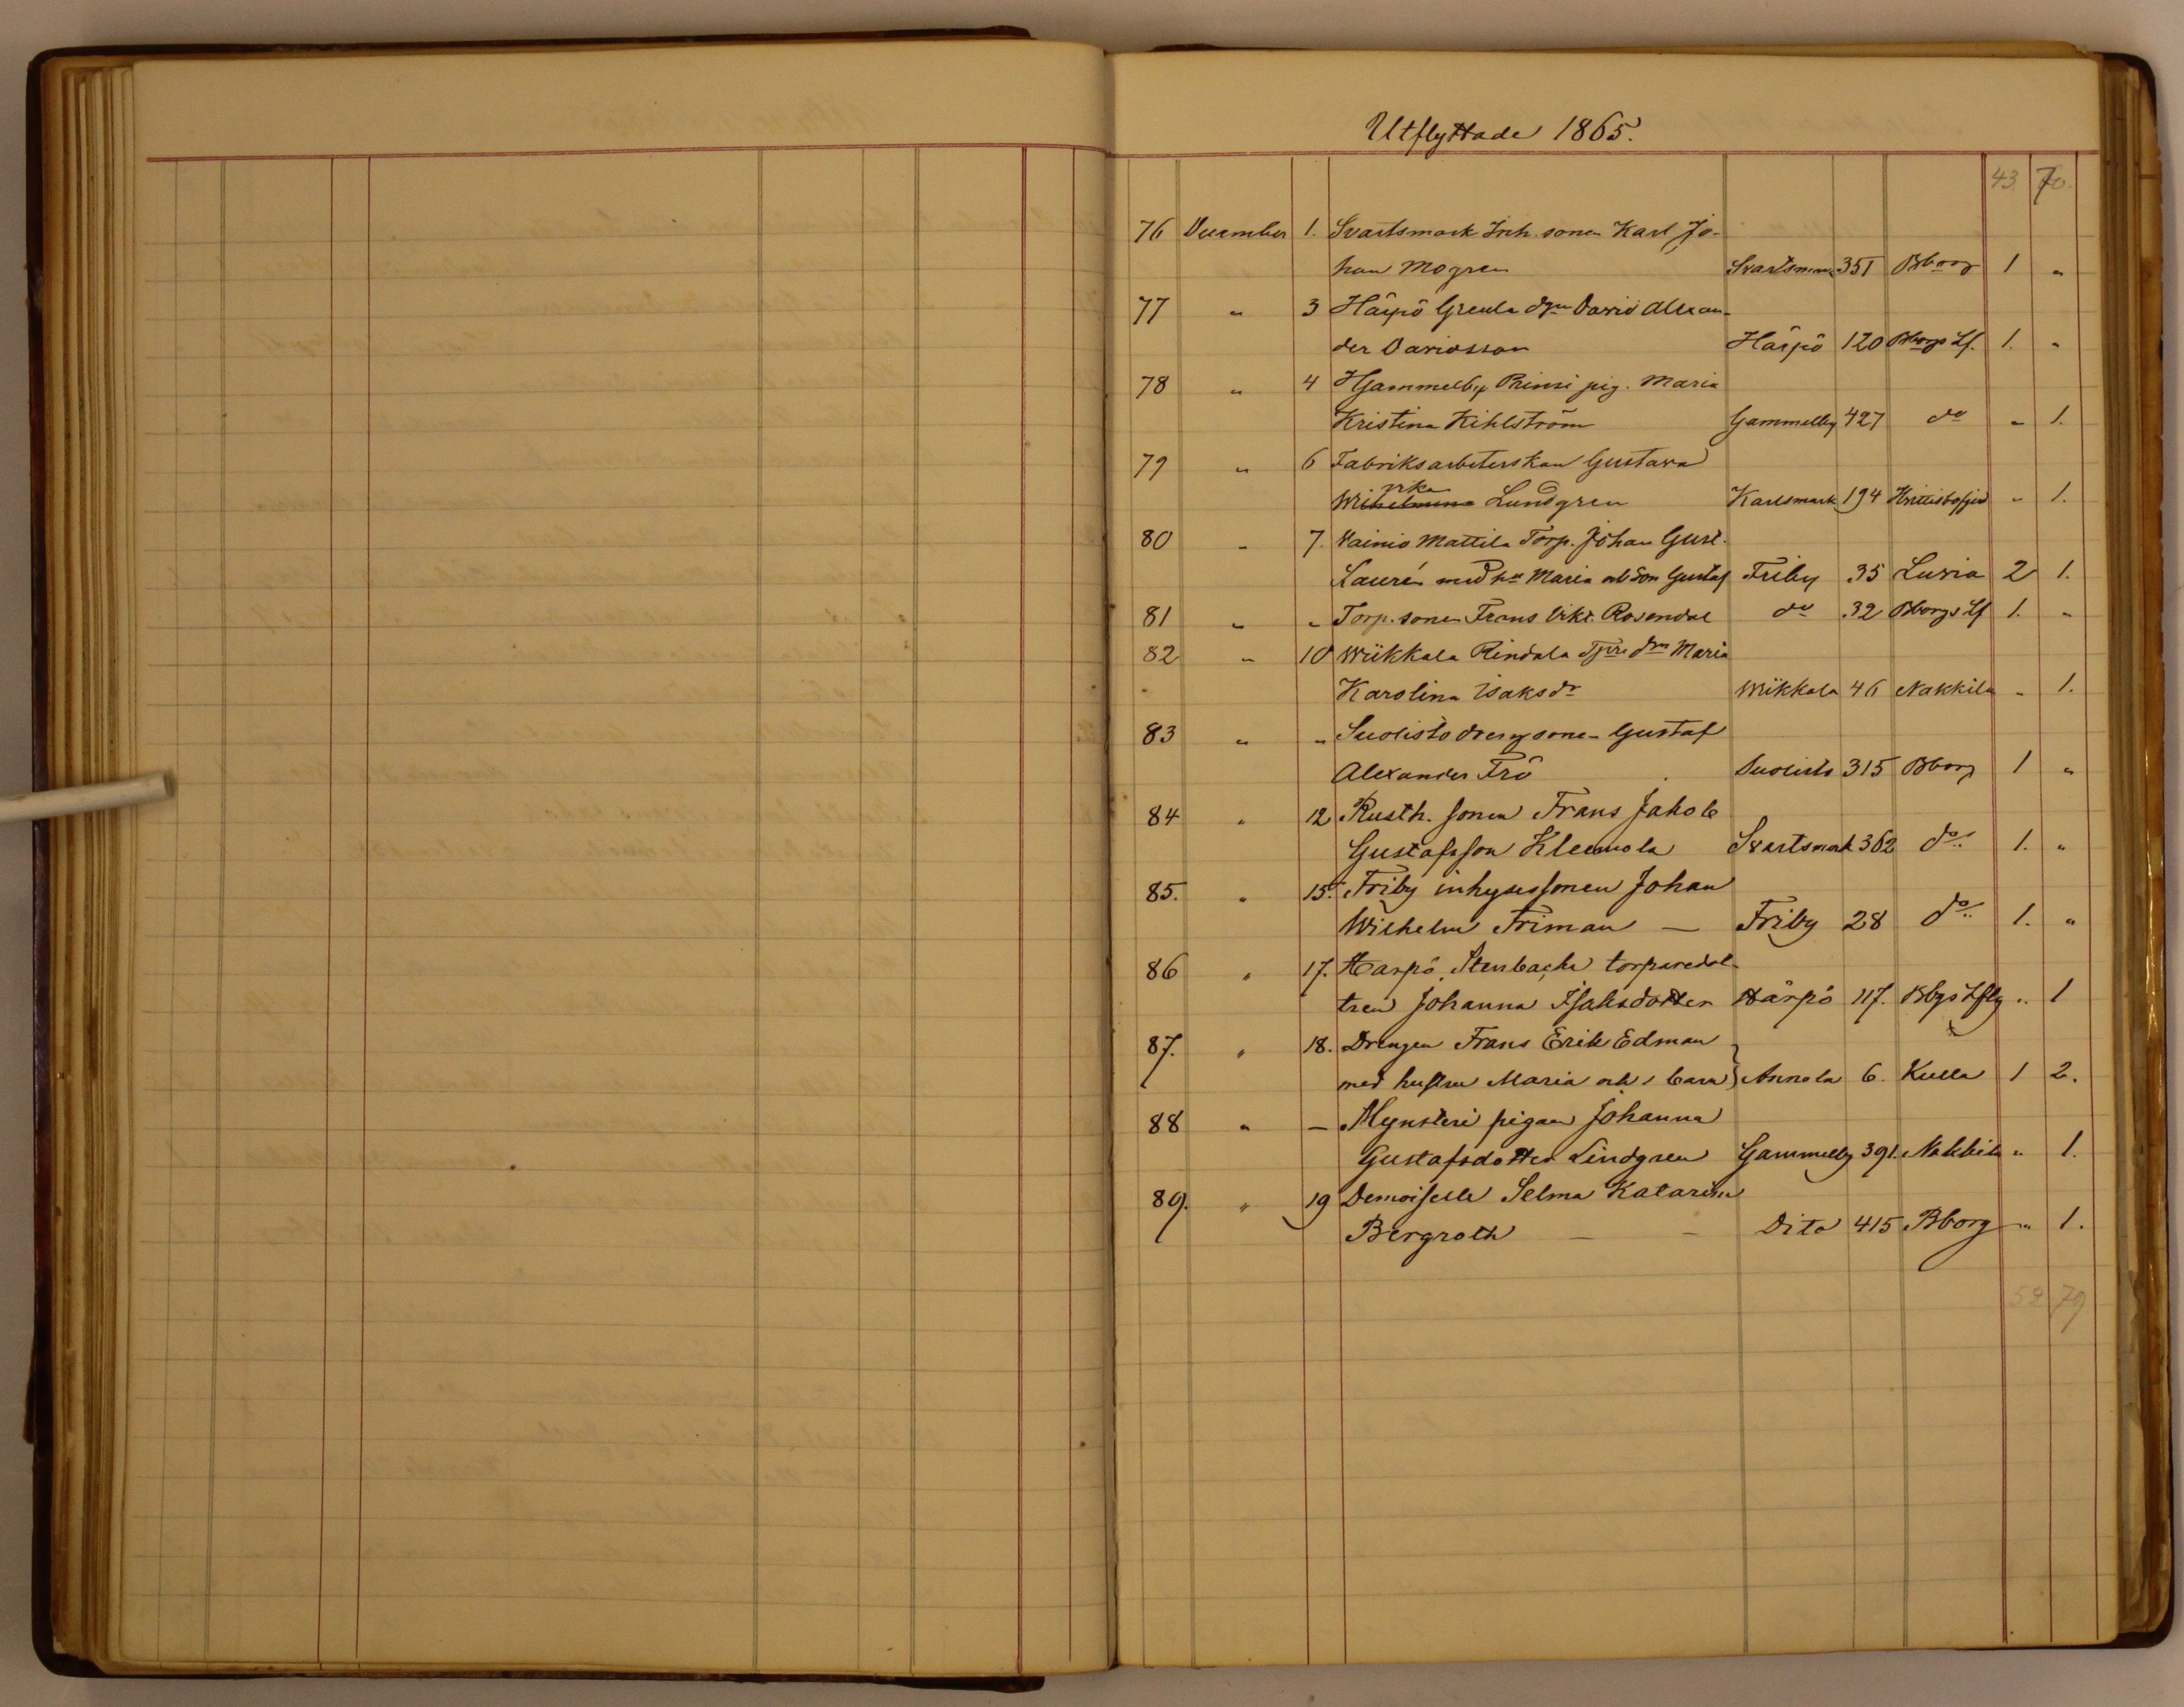 Utflyttade 1865.
43. 70.
76 December 1. Svartsmark Inh. sonen Karl Jo-
han Mogren Svartsmark 351 Bborg 1 "
77 " 3 Härpö Greula David Alexan-
der Davidsson Härpö 120 Bborgs Lf. 1. "
78 " 4 Gammelby Prinsi pig. Maria
Kristina Kihlström Gammelby 427 do " 1.
79 " 6 Fabriksarbeterskan Gustava
Lundgren Karlsmark 194 " 1.
80 " 7. Wainio Mattila Torp. Johan Gust.
Laurén med hu Maria och Son Gustaf Friby 35 Luvia 2 1.
81 " " Torp. sonen Frans Vikt. Rosendal do 32 Bborgs Lf 1. "
82 " 10 Wiikkala Rindala dn Maria
Karolina Isaksdr Wiikkala 46 Nakkila " 1.
83 " " Suolisto drengsonen Gustaf
Alexander Frö Suolisto 315 Bborg 1 "
84 " 12 Rusth. sonen Frans Jakob
Gustafsson Kleemola Svartsmark 362 do 1. "
85. " 15. Friby inhysessonen Johan
Wilhelm Friman — Friby 28 do 1. "
86 " 17. Harpö, Stenbacka torparedot-
tren Johanna Isaksdotter Härpö 117. Bbgs Lfg " 1
87. " 18. Drengen Frans Erik Edman
med hustru Maria och 1 barn } Annola 6. Kulla 1 2.
88 " — Mynsteri pigan Johanna
Gustafsdotter Lindgren Gammelby 391. Nakkila " 1.
89. " 19 Demoiselle Selma Katarina
Bergroth — — Dito 415 Bborg " 1.
52 79